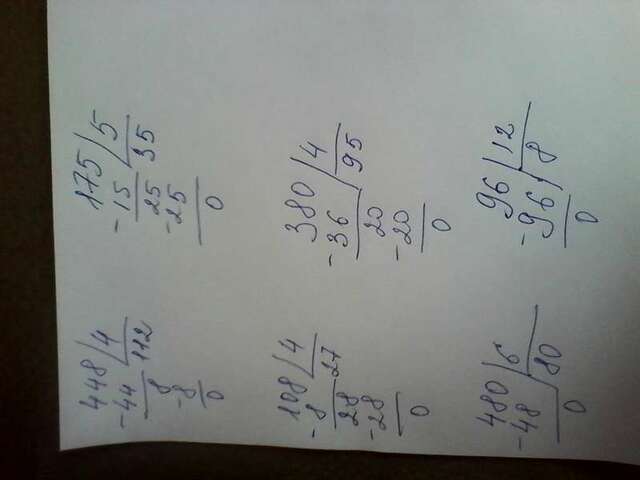 448 4
-44 112
8
-8
0
175 5
-15 35
25
-25
0
108 4
-8 27
28
-28
0
380 4
-36 95
20
-20
0
480 6
-48 80
0
96 12
-96 8
0